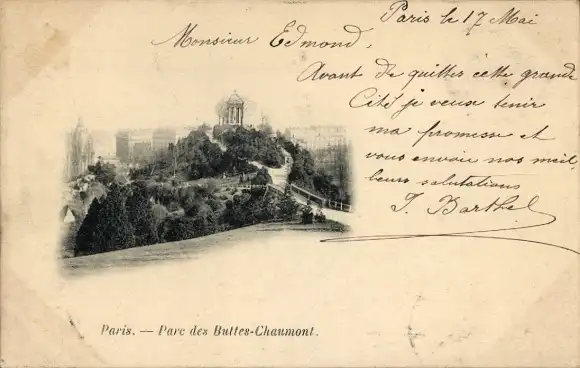 Paris le 17 Mai
Monsieur Edmond,
Avant de quitter cette grande
Cité je veux tenir
ma promesse et
vous envoie nos meil
leurs salutations
J. Barthel
Paris. — Parc des Buttes-Chaumont.